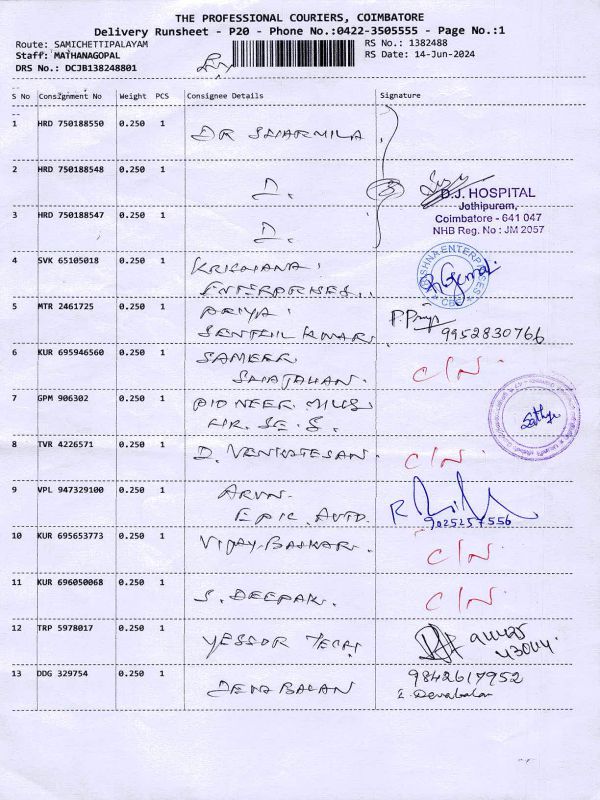 THE PROFESSIONAL COURIERS, COIMBATORE
Delivery Runsheet - P20 - Phone No.:0422-3505555 - Page No.:1
Route: SAMICHETTIPALAYAM RS No.: 1382488
Staff: MATHANAGOPAL RS Date: 14-Jun-2024
DRS No.: DCJB138248801
S No Consignment No Weight PCS Consignee Details Signature
1 HRD 750188550 0.250 1 DR SHARMILA
2 HRD 750188548 0.250 1 D.
D.J. HOSPITAL
Jothipuram,
3 HRD 750188547 0.250 1 D.
Coimbatore - 641 047
NHB Reg. No : JM 2057
4 SVK 65105018 0.250 1 KRISHANA
ENTERPRISES.
KRISHNA ENTERPRISES
CBE
5 MTR 2461725 0.250 1 PRIYA
SENTHIL KUMAR P. Priya 9952830766
6 KUR 695946560 0.250 1 SAMEER
SHAJAHAN. C/N.
7 GPM 906302 0.250 1 PIONEER MILLS
HR. SE. S. Sathya
8 TVR 4226571 0.250 1 D. VENKATESAN. C/N.
9 VPL 947329100 0.250 1 ARUN
EPIC AUTO. 9025257556
10 KUR 695653773 0.250 1 VIJAY BASKAR. C/N.
11 KUR 696050068 0.250 1 S. DEEPAK. C/N.
12 TRP 5978017 0.250 1 YESSOR TECH
13 DDG 329754 0.250 1 DEVA BALAN 9842617952
E. Devabalan